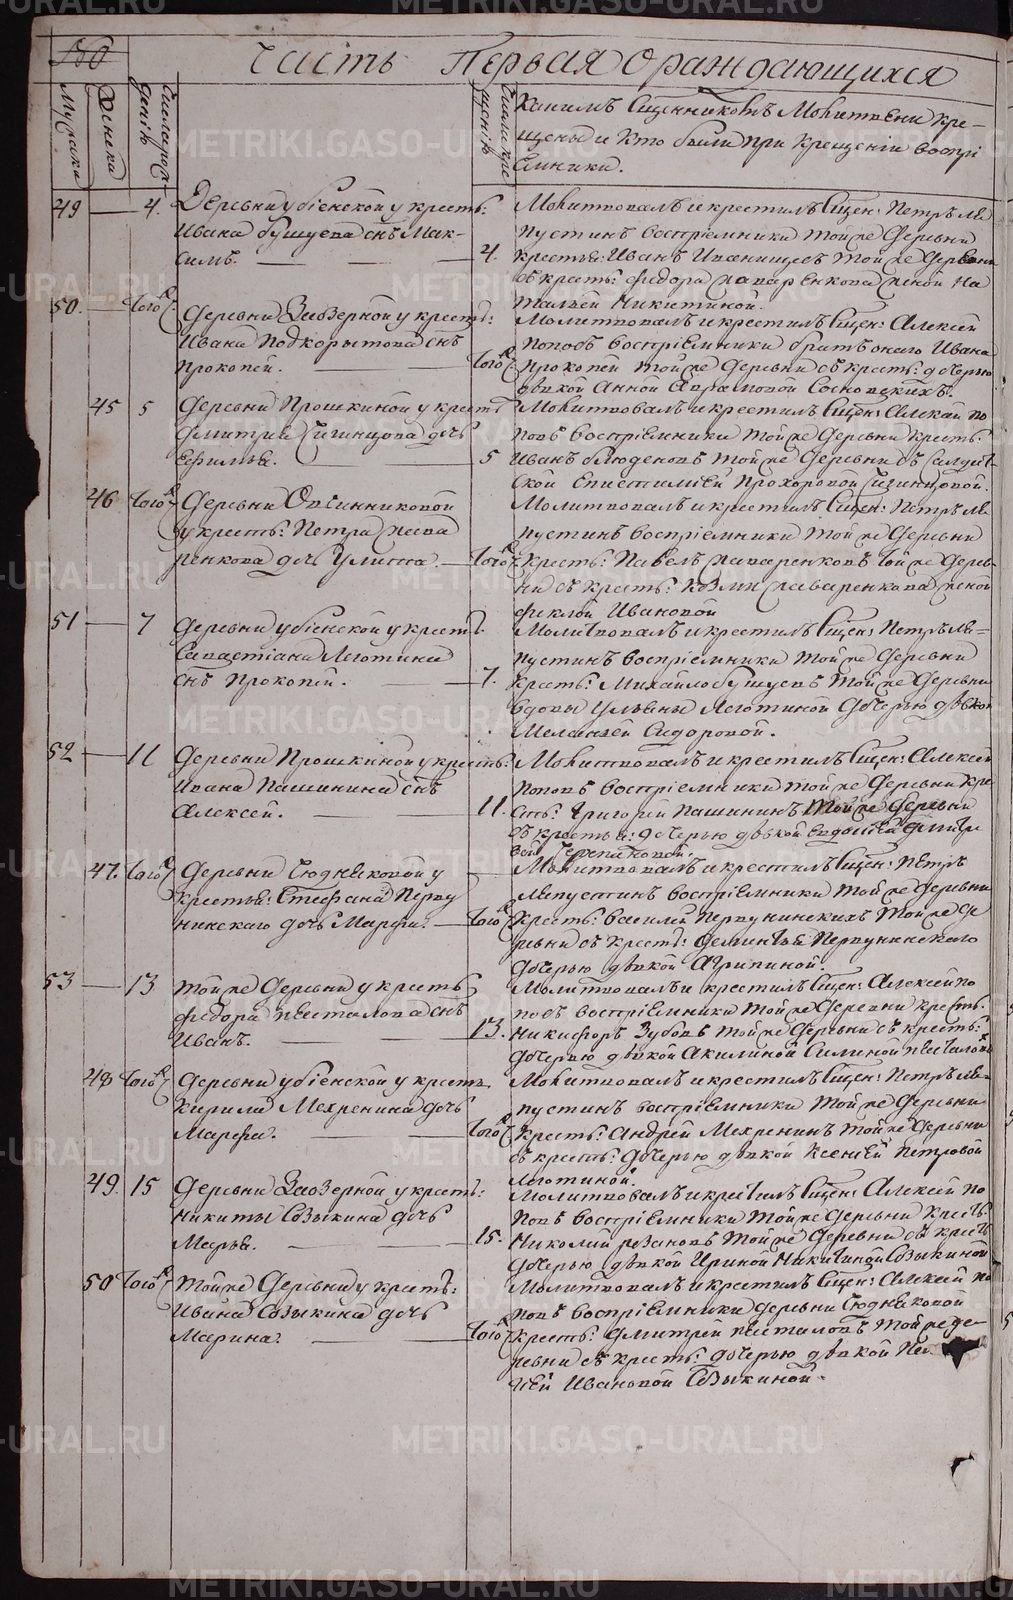 Часть Первая О раждающихся
Мужска
Женска
Число рож
денiя
Число кре
щенiя
Какимъ Священникомъ Молитвены кре-
щены и кто были при крещенiи воспрi
емники.
49 — 4. Деревни убiенской у кресть:
Ивана бушуева снъ Мак-
симъ.
4.
Молитвовалъ и крестилъ Сщен: Петръ Ле
пустинъ воспрiемники той же деревни
кресть: Иванъ Иванищевъ той же деревни
съ кресть: федора жавореннкова женой На
тальей Никитиной.
50. — того ж. деревни Заозерной у кресть:
Ивана Подкорытова снъ
Прокопей.
того ж.
Молитвовалъ и крестилъ Сщен: Алексей
Поповъ воспрiемники братъ онаго Ивана
Прокопей той же деревни съ кресть: дочерью
девкой Анной Аврамовой Сосновскихъ.
45 5 деревни Прошкиной у кресть
Дмитрия дочь
5
Молитвовалъ и крестилъ Сщен: Алексей По
повъ воспрiемники той же деревни кресть:
Иванъ той же деревни съ салдат
ской Епистимiей Прохоровой
46 того ж деревни Овчинниковой
у кресть: Петра жава
ренкова дочь Улита.
того ж.
Молитвовалъ и крестилъ Сщен: Петръ Ле
пустинъ воспрiемники той же деревни
кресть: Павелъ жаваренковъ той же дерев-
ни съ кресть: Козмы жаваренкова женой
феклой Ивановой
51 — 7 деревни убiенской у кресть
Савастiана Леготина
снъ Прокопей.
7.
Молитвовалъ и крестилъ Сщен: Петръ Ле-
пустинъ воспрiемники той же деревни
кресть: Михайло бушуевъ той же деревни
вдовы Ульяны Леготиной дочерью девкой
Меланьей Сидоровой.
52 — 11 деревни Прошкиной у кресть:
Ивана Пашинина снъ
Алексей.
11.
Молитвовалъ и крестилъ Сщен: Алексей
Поповъ воспрiемники той же деревни кре
сть: Григорей Пашининъ той же деревни
съ кресть: дочерью девкой Евдокiей Дмитрi
вой Черепановой.
47. того ж деревни Тюдняковой у
кресть: Стефана Перву
нинскаго дочь Марфа.
того ж.
Молитвовалъ и крестилъ Сщен: Петръ
Лепустинъ воспрiемники той же деревни
кресть: Василий Первунинскихъ той же де
ревни съ кресть: Первунинскаго
дочерью девкой Агрипиной.
53 — 13 той же деревни у кресть
федора песталова снъ
Иванъ.
13.
Молитвовалъ и крестилъ Сщен: Алексей По
повъ воспрiемники той же деревни кресть:
Никифоръ Зубовъ той же деревни съ кресть:
дочерью девкой Акилиной Силиной
48 того ж деревни убiенской у кресть
Кирила Мехренина дочь
Марфа.
того ж.
Молитвовалъ и крестилъ Сщен: Петръ Ле-
пустинъ воспрiемники той же деревни
кресть: Андрей Мехренинъ той же деревни
съ кресть: дочерью девкой Ксенiей Петровой
Леготиной.
49. 15 деревни Заозерной у кресть:
Никиты Созыкина дочь
Марья.
15.
Молитвовалъ и крестилъ Сщен: Алексей По
повъ воспрiемники той же деревни кресть
Николай резановъ той же деревни съ кресть
дочерью девкой Ириной Никитиной Созыкиной
50 того ж той же деревни у кресть:
Ивана Созыкина дочь
Марина.
того ж.
Молитвовалъ и крестилъ Сщен: Алексей По
повъ воспрiемники деревни Тюдняковой
кресть: Дмитрей пестановъ той же де-
ревни съ кресть: дочерью девкой
Ивановой Созыкиной.
METRIKI.GASO-URAL.RU